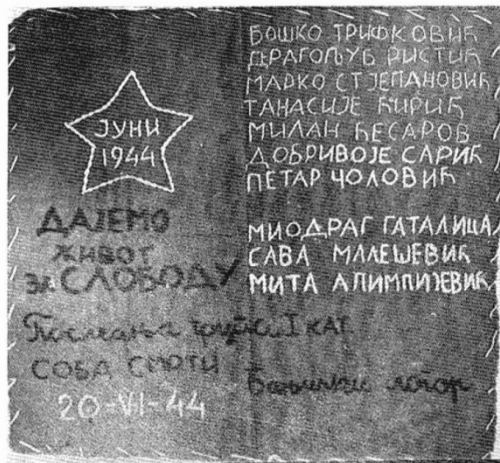 ЈУНИ
1944
ДАЈЕМО
ЖИВОТ
ЗА СЛОБОДУ
Последња група I КАТ.
СОБА СМРТИ
20-VI-44
БОШКО ТРИФКОВИЋ
ДРАГОЉУБ РИСТИЋ
МАРКО СТЈЕПАНОВИЋ
ТАНАСИЈЕ ЋИРИЋ
МИЛАН ЋЕСАРОВ
ДОБРИВОЈЕ САРИЋ
ПЕТАР ЧОЛОВИЋ
МИОДРАГ ГАТАЛИЦА
САВА МАЛЕШЕВИЋ
МИТА АЛИМПИЈЕВИЋ
Бањички логор